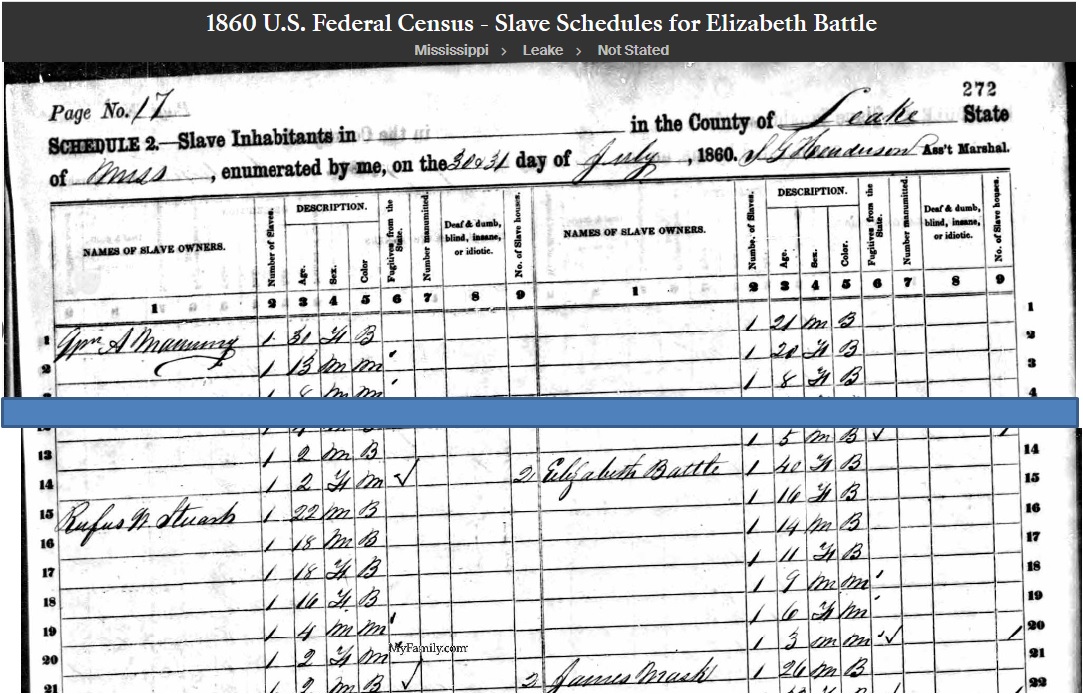 1860 U.S. Federal Census - Slave Schedules for Elizabeth Battle
Mississippi > Leake > Not Stated
272
Page No. 17
SCHEDULE 2.—Slave Inhabitants in in the County of Leake State
of Miss, enumerated by me, on the 30&31 day of July, 1860. J G Henderson Ass't Marshal.
NAMES OF SLAVE OWNERS. Number of Slaves. DESCRIPTION. Age. Sex. Color Fugitives from the State. Number manumitted. Deaf & dumb, blind, insane, or idiotic. No. of Slave houses. NAMES OF SLAVE OWNERS. Numbe. of Slaves. DESCRIPTION. Age. Sex. Color. Fugitives from the State. Number manumitted. Deaf & dumb, blind, insane, or idiotic. No. of Slave houses.
1 2 3 4 5 6 7 8 9 1 2 3 4 5 6 7 8 9
1 Wm A Manning 1 31 F B 1 21 m B 1
2 1 13 m m 1 20 F B 2
1 8 F B 3
4
1 5 m B 14
13 1 2 m B 2 Elizabeth Battle 1 40 F B 15
14 1 2 F m 1 16 F B 16
15 Rufus N Stuart 1 22 m B 1 14 m B 17
16 1 18 m B 1 11 F B 18
17 1 18 F B 1 9 m m 19
18 1 16 F B 1 6 F m 20
19 1 4 m m 1 3 m m 1 21
MyFamily.com
20 1 2 F m 2 James Mask 1 26 m B 22
21 1 2 m B